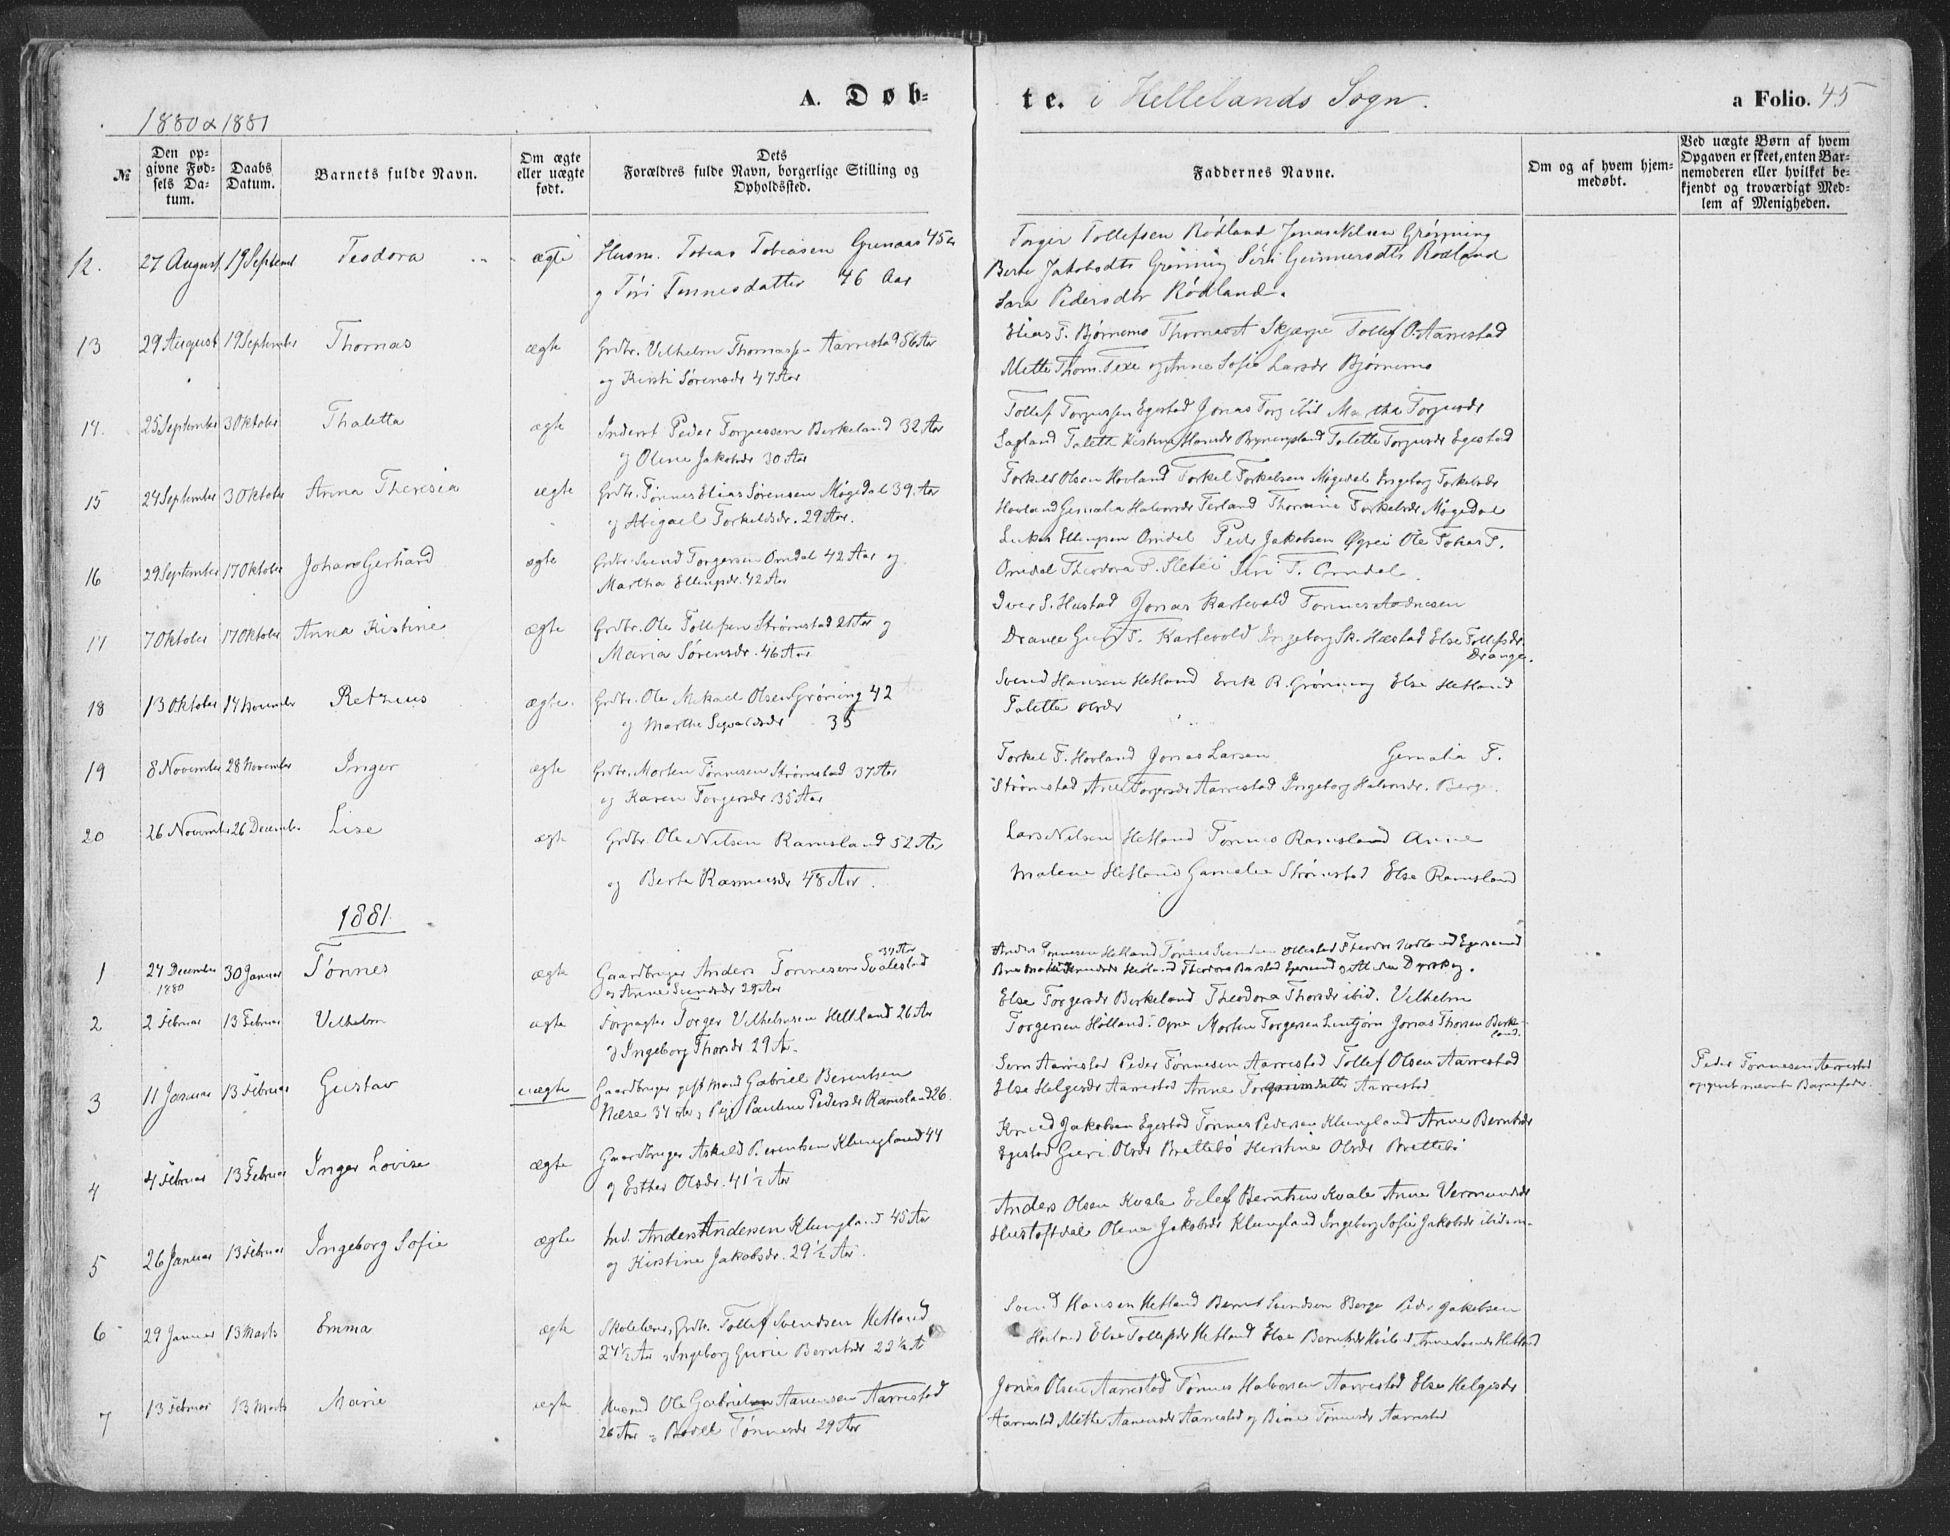 1880 & 1881
A. Døb-
te. i Hellelands Sogn.
a Folio. 45
№
Den op-
givne Fød-
sels Da-
tum.
Daabs
Datum.
Barnets fulde Navn.
Om ægte
eller uægte
født.
Dets
Forældres fulde Navn, borgerlige Stilling og
Opholdssted.
Faddernes Navne.
Om og af hvem hjem-
medøbt.
Ved uægte Børn af hvem
Opgaven er skeet, enten Bar-
nemoderen eller hvilket be-
kjendt og troværdigt Med-
lem af Menigheden.
12. 27 August 19 September Teodora ægte Husm. Tobias Tobiasen 45
og Tøri Tønnesdatter 46 Aar
Torger Tollefsen Rødland Grønning
Berte Jakobsdtr Grønning Siri Rødland
Sara Pedersdtr Rødland.
13 29 August 19 September Thomas ægte Grdbr. Vilhelm Thomass. Aarrestad 56 Aar
og Kirsti Sørensdr 47 Aar
Elias T. Bjørnemo Skjerpe Tollef O. Aarrestad
Mette Thom. og Anne Sofie Larsdr Bjørnemo
14. 25 September 3 Oktober Thaletta ægte Inderst Peder Torgussen Birkeland 32 Aar
og Oline Jakobsdr 30 Aar
Tollef Torgussen Egestad Jonas Torg ibid Martha Torgusdr
Lagland Talette Talette Torgusdr Egestad
15 24 September 3 Oktober Anna Theresia ægte Grdbr. Tønnes Elias Sørensen Møgedal 39 Aar
og Abigael Torkildsdr. 29 Aar.
Torkild Olsen Hovland Torkel Torkelsen Møgedal Ingeborg Torkelsdr
Hovland Gemalia Halvorsdr Thomine Torkelsdr Møgedal
16 29 September 17 Oktober Johan Gerhard ægte Grdbr Svend Torgersen Omdal 42 Aar og
Martha Ellingsdr. 42 Aar
Ellingsen Omdal Peder Jakobsen Øgrei Ole T.
Omdal Theodora T. Sletei Siri T. Omdal.
17 7 Oktober 17 Oktober Anna Kistine ægte Grdbr. Ole Tollefsen Strømstad Aar og
Maria Sørensdr. 46 Aar
Iver S. Hæstad Jonas Kartevold Tønnes Aadnesen
Drange T. Kartevold Ingeborg Sk. Hæstad Else Tollefsdr
Drange.
18 13 Oktober 14 November Retzius ægte. Grdbr. Ole Mikael Olsen Grøning 42
og Marthe Sigvaldsdr 35
Svend Hansen Hetland Erik R. Grønning Else Hetland
Talette Olsdr
19 8 November 28 November Inger ægte Grdbr. Morten Tønnesen Strømstad 37 Aar
og Karen Torgersdr 35 Aar
Torkel T. Hovland Jonas Larsen Gemalia T.
Strømstad Ane Torgersdr Aarrestad Ingeborg Halvorsdr. Berge.
20 26 November 26 December Lise ægte Grdbr. Ole Nilsen Ramsland 52 Aar
og Berte Rasmusdr 48 Aar.
Lars Nilsen Hetland Tønnes Ramsland Anne
Malene Hetland Gamalie Strømstad Else Ramsland
1881
1 24 December
1880 30 Januar Tønnes ægte Gaardbruger Anders Tønnesen Svalestad
34 Aar
og Anne Svendsdr 29 Aar
Anders Tønnesen Hetland Tønnes Svendsen Ollestad Egersund
Hetland Theodora Egersund og
2 2 Februar 13 Februar Vilhelm ægte Forpagter Torger Vilhelmsen Helland 26 Aar
og Ingeborg Thorsdr 29 Ar.
Else Torgersdr Birkeland Theodora Thorsdr ibid. Vilhelm
Torgersen Morten Torgersen Jonas Thorsen Birke-
land.
3 11 Januar 13 Februar Gustav uægte Gaardbruger gift Mand Gabriel Berentsen
Næse 34 Aar og Pige Pauline Pedersdr Ramsland 26.
Sven Aarrestad Peder Tønnesen Aarrestad Tollef Olsen Aarrestad
Else Helgesdr Aarrestad Anne Aarrestad
Peder Tønnesen Aarrestad
opgivet nævnte Barnefader.
4 4 Februar 13 Februar Inger Lovise ægte Gaardbruger Askild Berentsen Klungland 44
og Esther Olsdr. 41½ Ar
Knud Jakobsen Egestad Tønnes Pedersen Klungland Anne Berntsdr
Egestad Guri Olsdr Brattebø Olsdr Brattebø
5 26 Januar 13 Februar Ingeborg Sofie ægte Ind. Anders Andersen Klungland 45 Aar
og Kirstine Jakobsdr. 29½ Ar.
Anders Olsen Kvale Eilef Berntsen Kvale Anne
Oline Jakobsdr Klungland Ingeborg Sofie Jakobsdr ibidem.
6 29 Januar 13 Marts Emma ægte Skolelærer, Grdbr. Tollef Svendsen Hetland
24½ Aar og Ingeborg Gurie Berntsdr 22½ A
Svend Hansen Hetland Bernt Svendsen Berge Peder Jakobsen
Hovland Else Tollefsdr Hetland Else Berntsdr Anne Svendsdr Hetland
7 13 Februar 13 Marts Marie ægte Ole Gabriel Aanensen Aarrestad
26 Aar og Bodel Tønnesdr 29 Aar
Jonas Olsen Aarrestad Tønnes Halvorsen Aarrestad Else Helgesdr
Aarrestad Mette Aanensdr Aarrestad og Tønnesdr Aarrestad